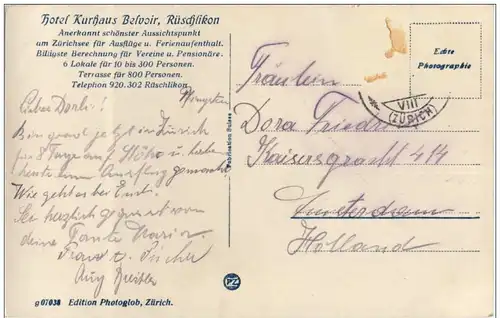 Hotel Kurhaus Belvoir, Rüschlikon
Anerkannt schönster Aussichtspunkt
am Zürichsee für Ausflüge u. Ferienaufenthalt.
Billigste Berechnung für Vereine u. Pensionäre.
6 Lokale für 10 bis 300 Personen.
Terrasse für 800 Personen.
Telephon 920.302 Rüschlikon
Lieber Dorli!
Bin grad jetzt in Zürich
für 8 Tage auf Höhe u. habe
heute einen Ausflug gemacht
Wie geht es
Sei herzlich gegrüsst von
deine Tante Maria
Franz
Aug
g 07038 Edition Photoglob, Zürich.
Fabrication Suisse
PZ
Echte
Photographie
VIII
(ZÜRICH)
Fräulein
Dora
Kaisersgracht 414
Amsterdam
Holland